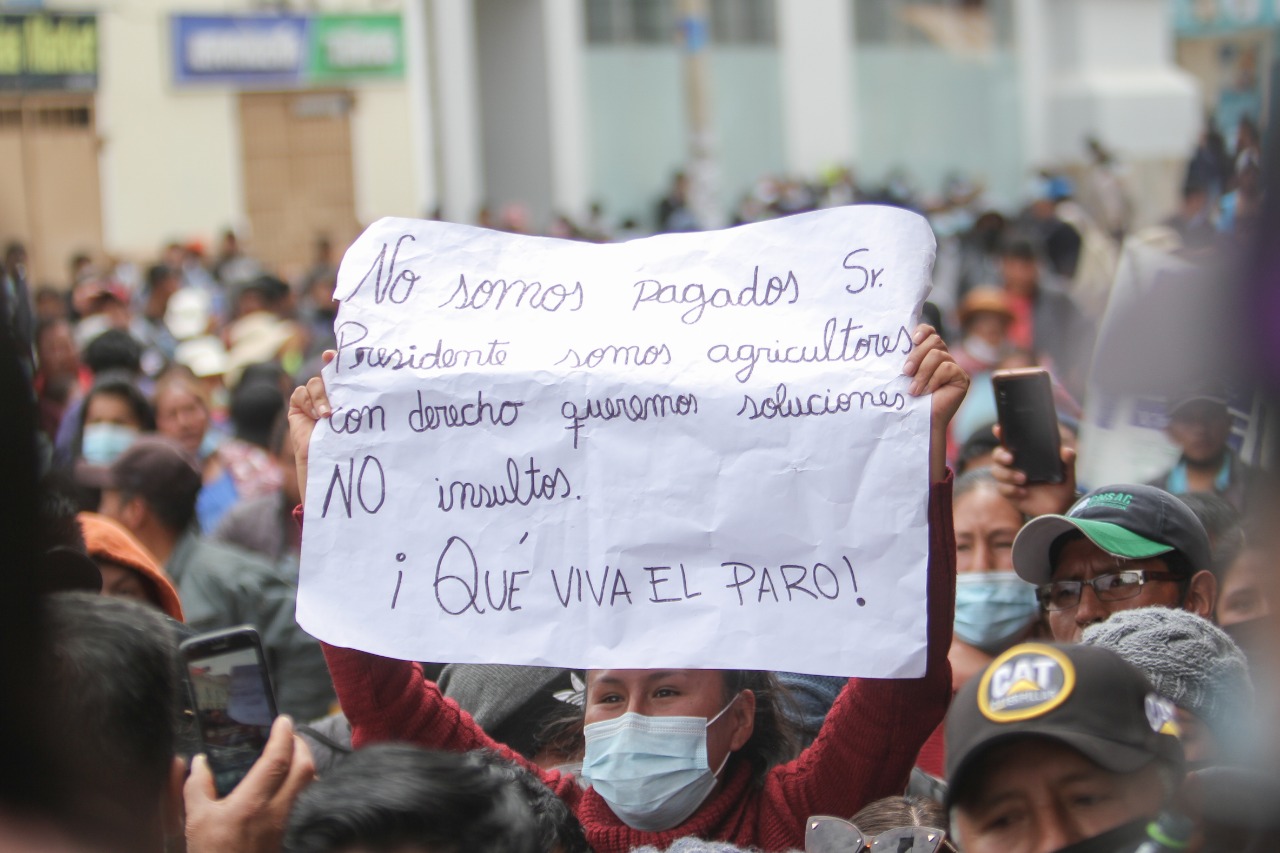 No somos pagados Sr.
Presidente somos agricultores
con derecho queremos soluciones
NO insultos.
¡QUÉ VIVA EL PARO!
CAT